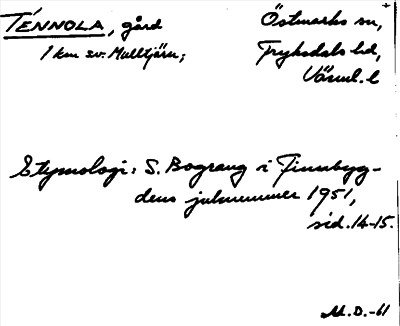 TENNOLA, gård Östmarks sn,
1 km sv. Mulltjärn; Fryksdals hd,
Värml. l
Etymologi: S. Bograng i Finnbyg-
dens julnummer 1951,
sid. 14-15.
M.D.-61